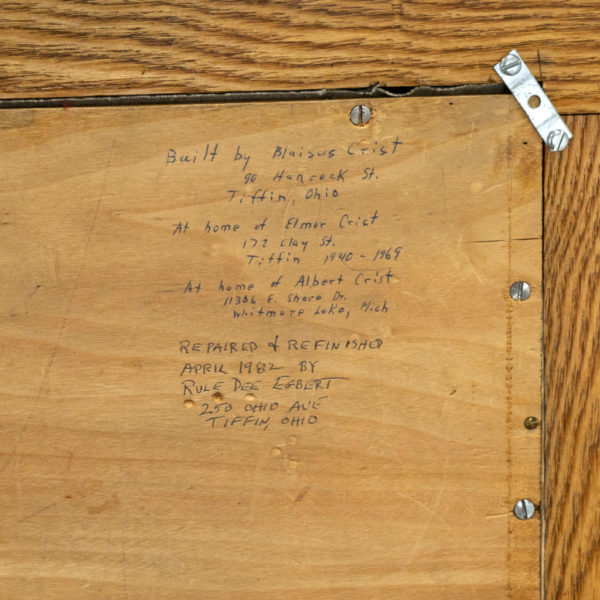 Built by Blaisus Crist
90 Hancock St.
Tiffin, Ohio
At home of Elmer Crist
172 Clay St.
Tiffin 1940-1969
At home of Albert Crist
11306 E. Shore Dr.
Whitmore Lake, Mich
REPAIRED & REFINISHED
APRIL 1982 BY
RULE DEE EGBERT
250 OHIO AVE
TIFFIN, OHIO